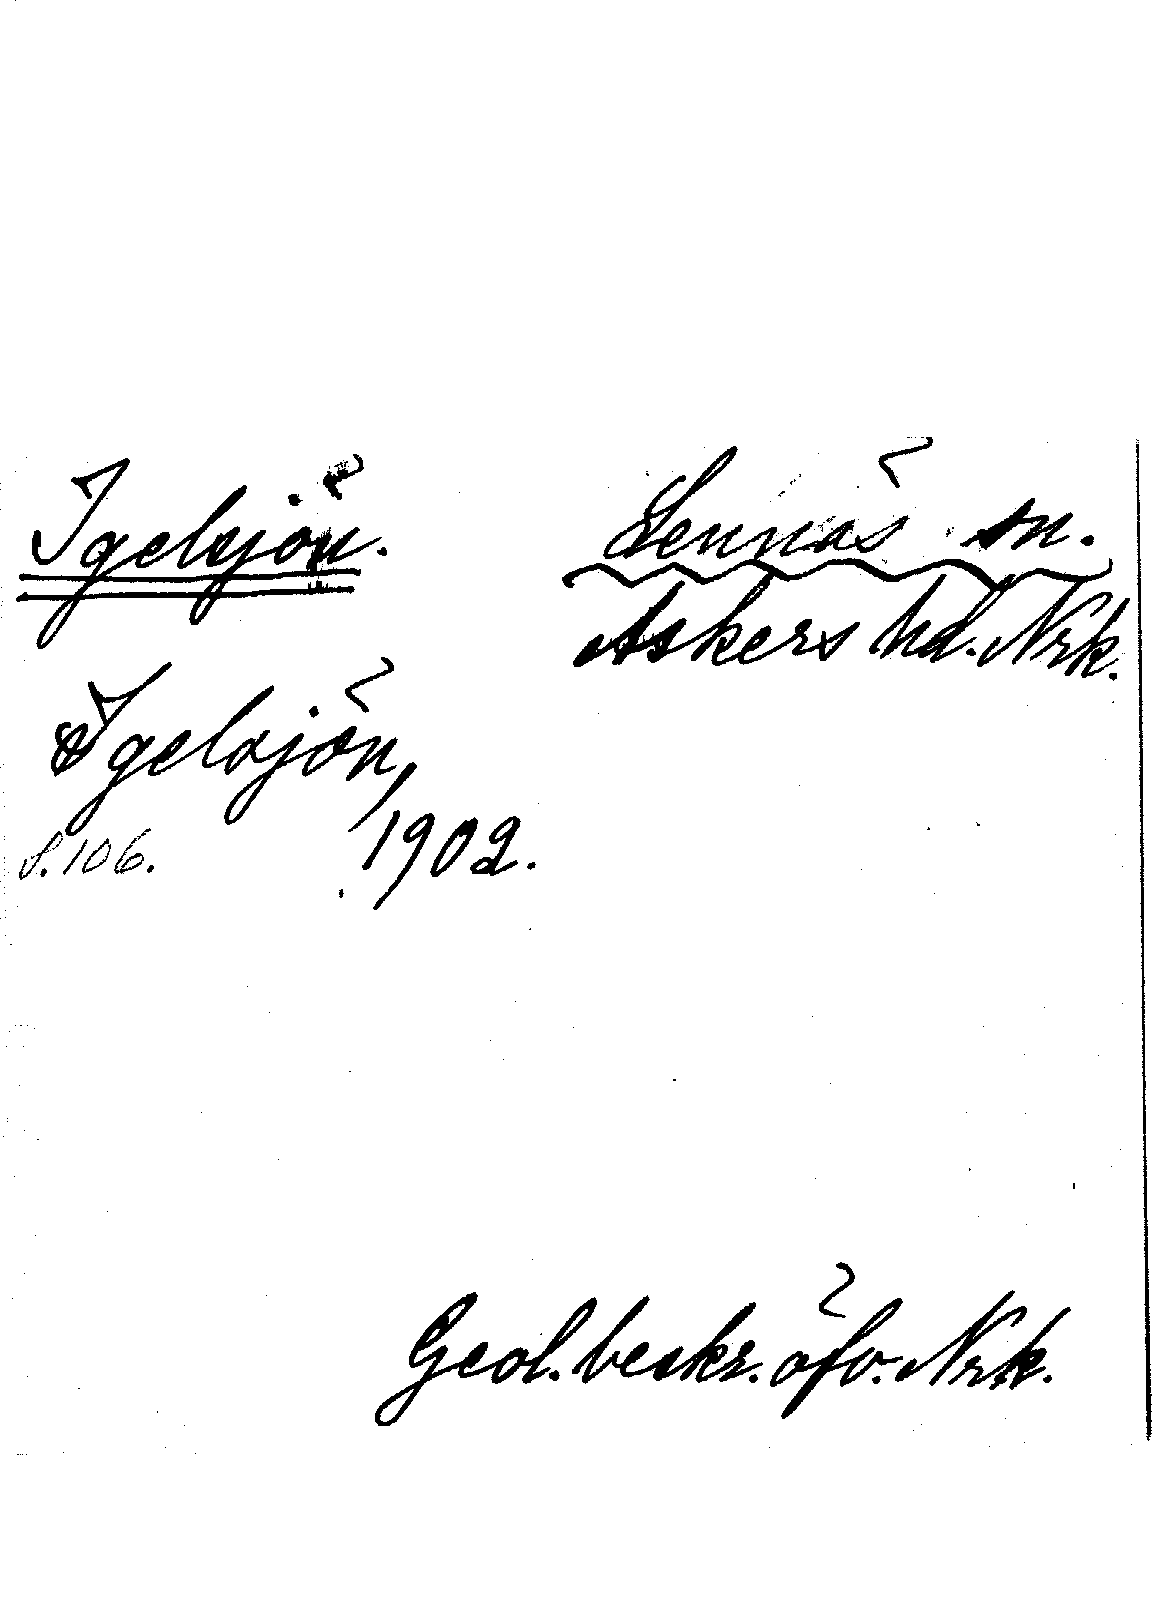 Igelsjön.
Lennäs sn.
Askers hd. Nrk.
Igelsjön,
1902.
S. 106.
Geol. beskr. öfv. Nrk.